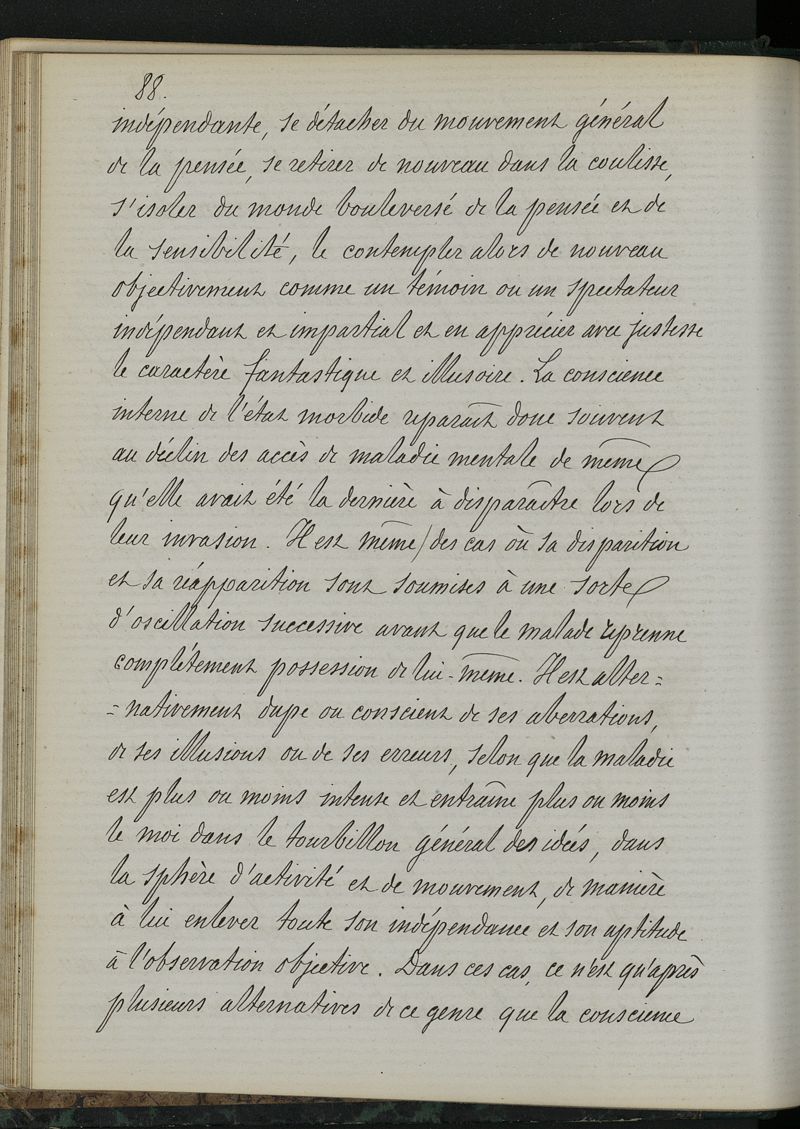 88.
indépendante, se détacher du mouvement général
de la pensée, se retirer de nouveau dans la coulisse,
s'isoler du monde bouleversé de la pensée et de
la sensibilité, le contempler alors de nouveau
objectivement comme un témoin ou un spectateur
indépendant et impartial et en apprécier avec justesse
le caractère fantastique et illusoire. La conscience
interne de l'état morbide reparaît donc souvent
au déclin des accès de maladie mentale de même
qu'elle avait été la dernière à disparaître lors de
leur invasion. Il est même des cas où sa disparition
et sa réapparition sont soumises à une sorte
d'oscillation successive avant que le malade reprenne
complétement possession de lui-même. Il est alter=
=nativement dupe ou conscient de ses aberrations,
de ses illusions ou de ses erreurs, selon que la maladie
est plus ou moins intense et entraîne plus ou moins
le moi dans le tourbillon général des idées, dans
la sphère d'activité et de mouvement, de manière
à lui enlever toute son indépendance et son aptitude
à l'observation objective. Dans ces cas, ce n'est qu'après
plusieurs alternatives de ce genre que la conscience